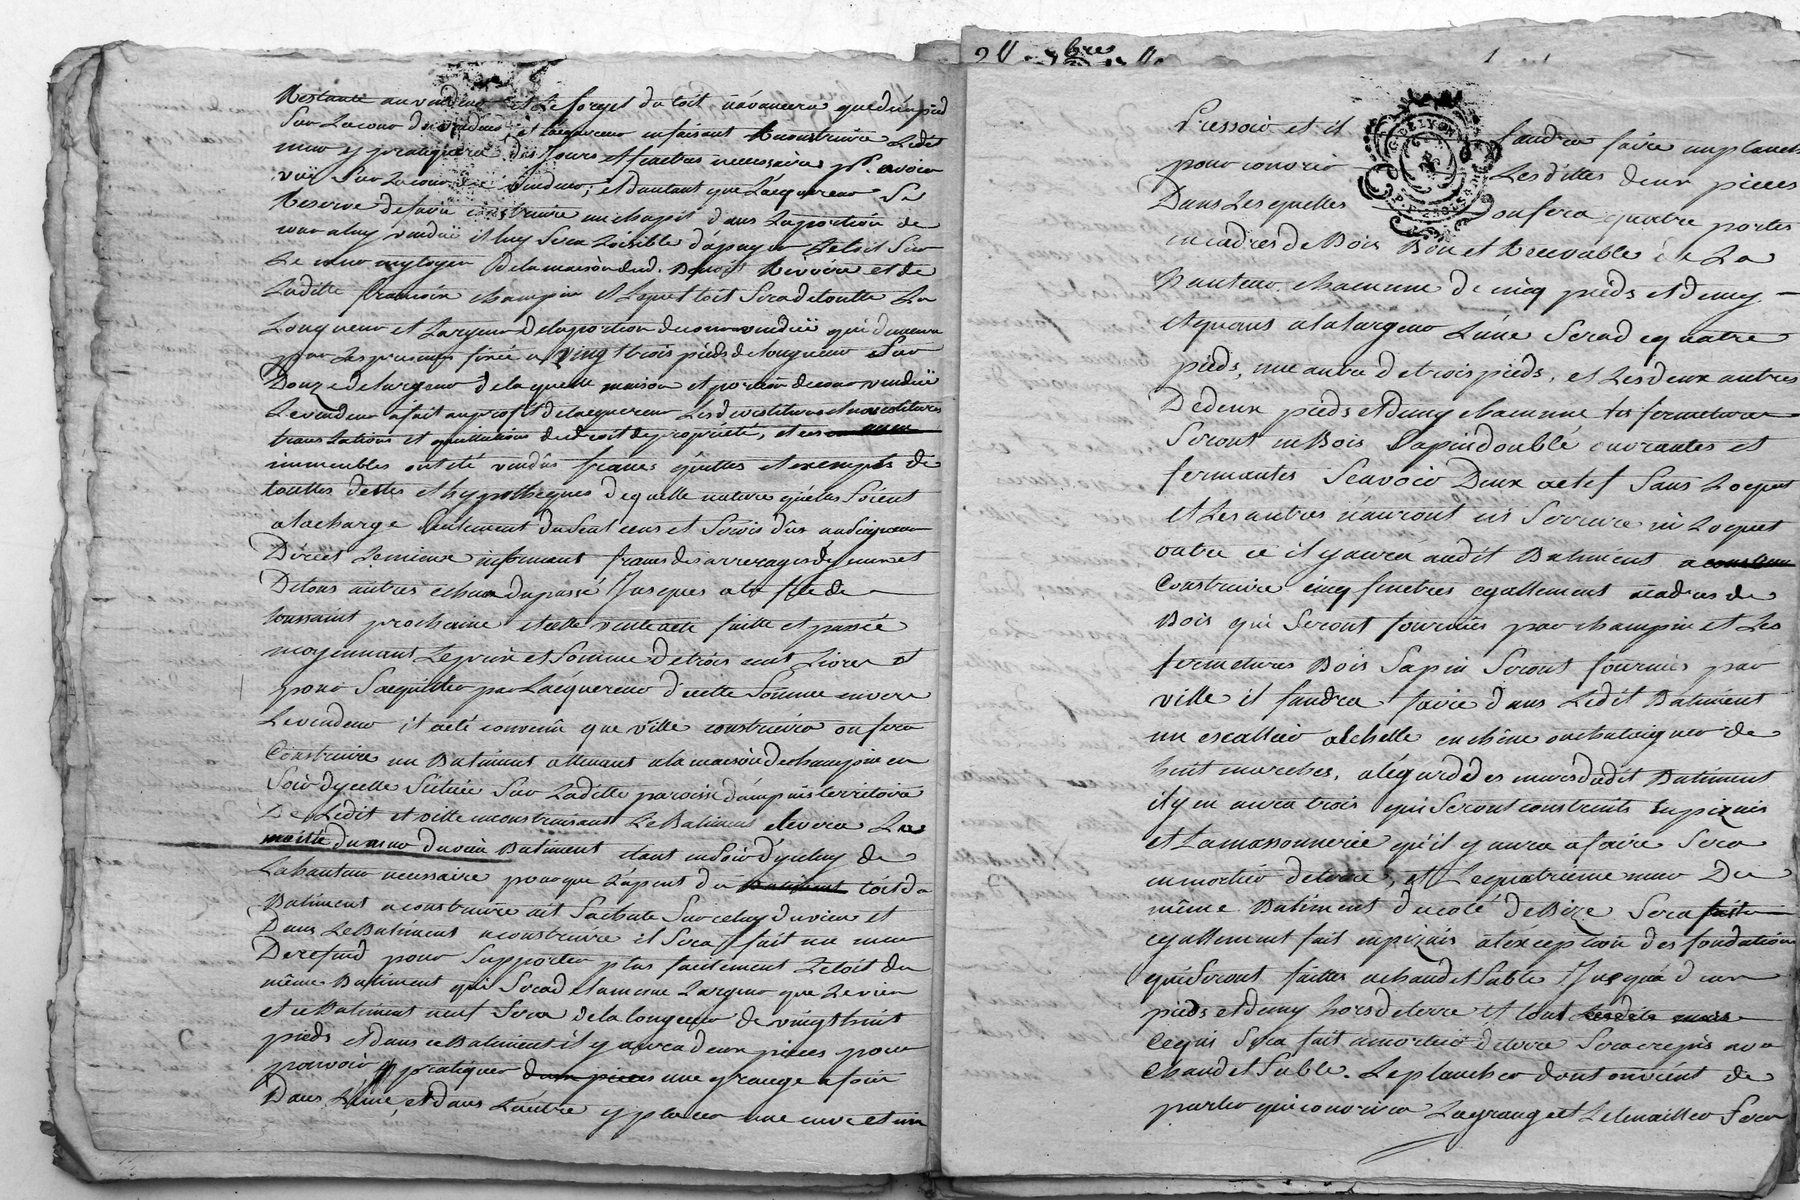 Restante au vendeur et Le forget du toit n'avancera que d'un pied
Sur La cour du vendeur et L'acquereur en faisant Reconstruire Ledit
mur y pratiquera des Jours et fenetres necessaires pr. avoir
vüe Sur La cour du vendeur; et d'autant que L'acquereur Se
Reserve de faire construire un chapit dans La portion de
cour a luy vendüe il luy Sera Loisible d'apuyer Le toit Sur
Le mur mytoyen de la maison dud. Benoit Revoire et de
Laditte françoise champin et Lequel toit Sera de toutte La
Longueur et Largeur de la portion de cour vendüe qui demeure
par Les presentes fixée a vingt trois pieds de longueur Sur
Douze de largeur de la quelle maison et portion de cour vendüe
Le vendeur a fait au profit de l'acquereur Les devestitures et investitures
translations et quittations de droit de propriété, et ces
immeubles ont été vendus francs quittes et exempts de
touttes dettes et hypotheques de quelle nature qu'elles Soient
a la charge Seulement du Seul cens et Servis dûs au Seigneur
Direct Le mieux infirmant francs des arrerages d'yceux et
De tous autres echus du passé Jusques a la fete de
toussaint prochaine et cette vente a été faitte et passée
moyennant Le prix et Somme de trois cent Livres et
pour S'acquitter par L'acquereur d'icelle Somme envers
Le vendeur il a été convenû que ville construira ou fera
Construire un Batiment attenant a la maison de champin en
Soir d'ycelle Scituée Sur Laditte paroisse d'ampuis territoire
De Ledit et ville en construisant Le Batiment elevera La
moitié du mur du vieux Batiment etant en Soir d'yceluy de
La hauteur necessaire pour que L'apent du Batiment toit du
Batiment a construire ait Sa chute Sur celuy du vieux et
Dans Le Batiment a construire il Sera fait un mur
De refend pour Supporter plus facilement Le toit du
même Batiment qui Sera de la meme Largeur que Le vieux
et ce Batiment neuf Sera de la longueur de vingt huit
pieds et dans ce Batiment il y aura deux pieces pour
pouvoir pratiquer dans pieces une grange a foin
Dans L'une, et dans L'autre y placer une cuve et un
Pressoir et il faudra faire un plancher
pour couvrir Les dittes deux pieces
Dans Les quelles on fera quatre portes
en cadres de Bois Bon et Recevable de La
hauteur chacune de cinq pieds et demy
et quant a la largeur L'une Sera de quatre
pieds, une autre de trois pieds, et Les deux autres
De deux pieds et demy chacune les fermetures
Seront en Bois Sapin doublé ouvrantes et
fermantes Seavoir Deux a clef Sans Loquet
et Les autres n'auront ni Serrure ni Loquet
outre ce il y aura audit Batiment a
Construire cinq fenetres egallement a cadres de
Bois qui Seront fournies par champin et Les
fermetures Bois Sapin Seront fournies par
ville il faudra faire dans Ledit Batiment
un escallier a echelle en chêne ou chataigner de
huit marches, a l'égard des murs dudit Batiment
il y en aura trois qui Seront construits en pizais
et La massonnerie qu'il y aura a faire Sera
en mortier de terre, et Le quatrième mur Du
même Batiment du coté de Bize Sera faitte
egallement fait en pizais a l'exception des fondations
qui Seront faittes a chaud et Sable Jusqu'a deux
pieds et demy hors de terre et tout Lesdits murs
Ce qui Sera fait a mortier de terre Sera crepis avec
Chaud et Sable. Le plancher dont on vient de
parler qui couvrira La grange et Le Sera